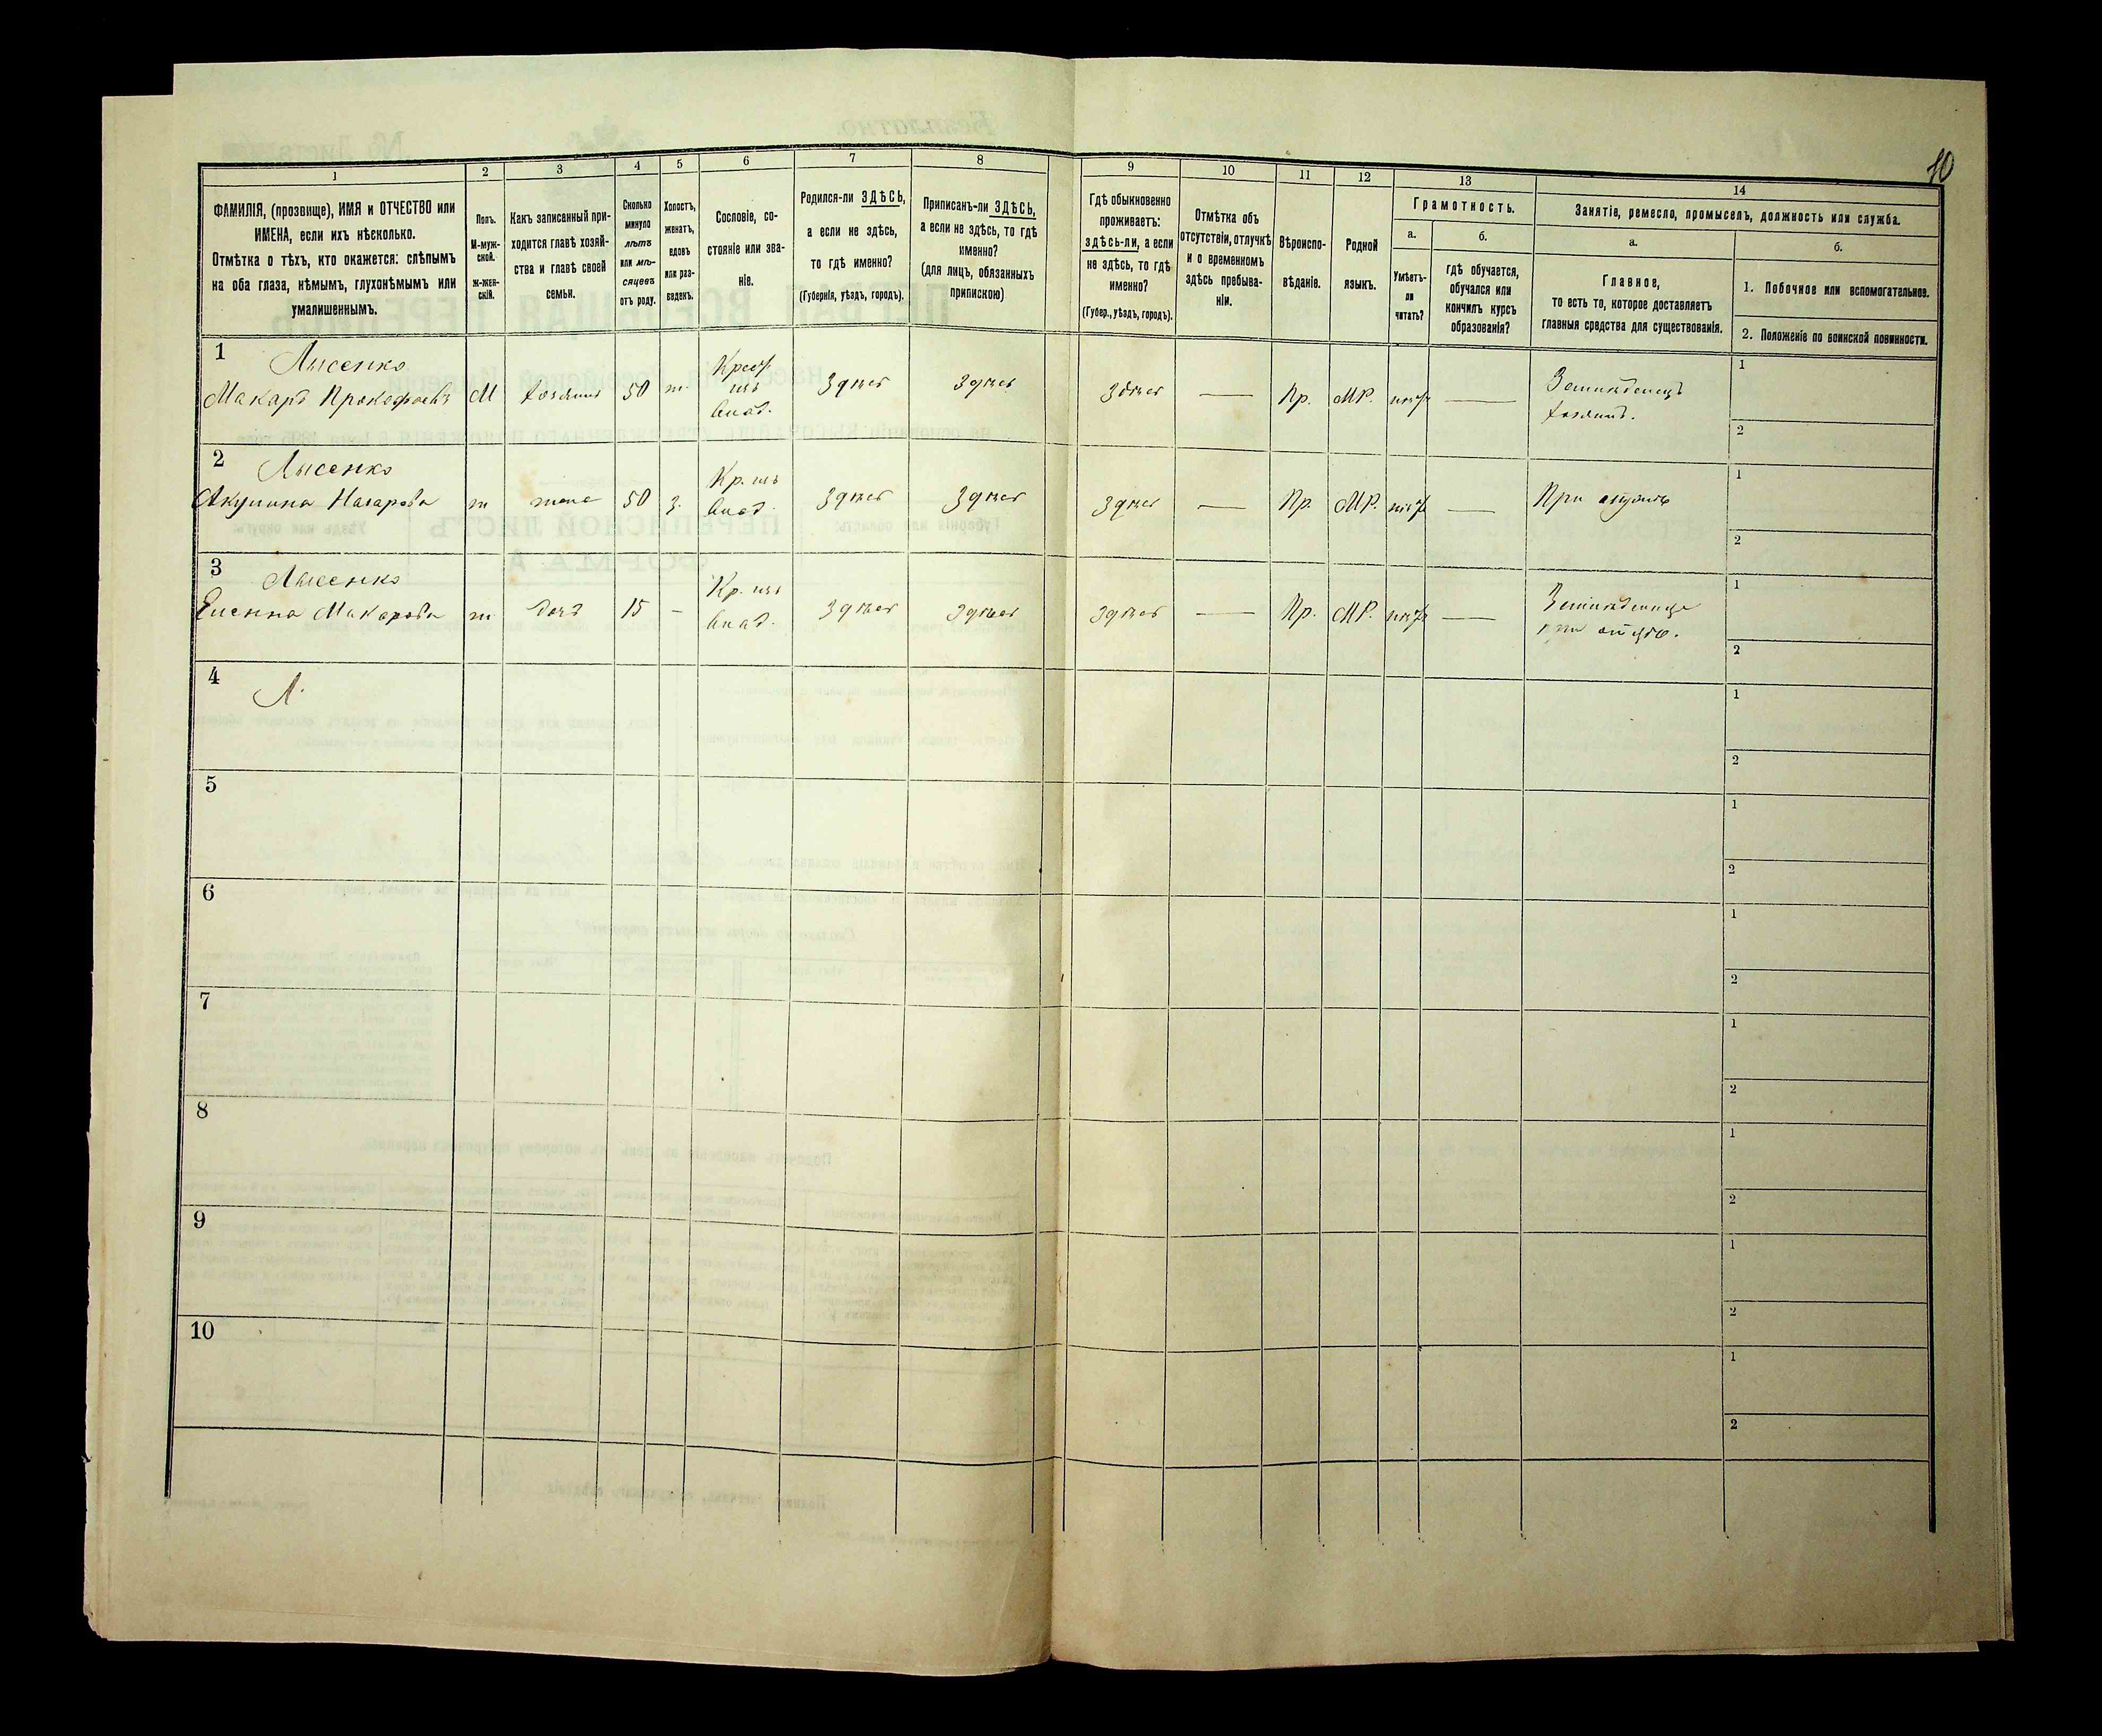 10
1
2
3
4
5
6
7
8
9
10
11
12
13
14
ФАМИЛІЯ, (прозвище), ИМЯ и ОТЧЕСТВО или
ИМЕНА, если ихъ нѣсколько.
Отмѣтка о тѣхъ, кто окажется: слѣпымъ
на оба глаза, нѣмымъ, глухонѣмымъ или
умалишеннымъ.
Полъ.
М-муж-
ской.
ж-жен-
скій.
Какъ записанный при-
ходится главѣ хозяй-
ства и главѣ своей
семьи.
Сколько
минуло
лѣтъ
или мѣ-
сяцевъ
отъ роду.
Холостъ,
женатъ,
вдовъ
или раз-
веденъ.
Сословіе, со-
стояніе или зва-
ніе.
Родился-ли ЗДѢСЬ,
а если не здѣсь,
то гдѣ именно?
(Губернія, уѣздъ, городъ).
Приписанъ-ли ЗДѢСЬ,
а если не здѣсь, то гдѣ
именно?
(для лицъ, обязанныхъ
припискою)
Гдѣ обыкновенно
проживаетъ:
здѣсь-ли, а если
не здѣсь, то гдѣ
именно?
(Губер., уѣздъ, городъ).
Отмѣтка объ
отсутствіи, отлучкѣ
и о временномъ
здѣсь пребыва-
ніи.
Вѣроиспо-
вѣданіе.
Родной
языкъ.
Грамотность.
а.
Умѣетъ-
ли
читать?
б.
гдѣ обучается,
обучался или
кончилъ курсъ
образованія?
Занятіе, ремесло, промыселъ, должность или служба.
а.
Главное,
то есть то, которое доставляетъ
главныя средства для существованія.
б.
1. Побочное или вспомогательное.
2. Положеніе по воинской повинности.
1 Лысенко
Макаръ Прокофьевъ М хозяинъ 50 ж. Крест. изъ влад. Здѣсь Здѣсь Здѣсь — Пр. МР. нѣтъ — Земледѣлецъ
хозяинъ.
1
2
2 Лысенко
Акулина Назарова ж жена 50 з. Кр. изъ влад. Здѣсь Здѣсь Здѣсь — Пр. МР. нѣтъ — При
1
2
3 Лысенко
Макарова ж дочь 15 - Кр. изъ влад. Здѣсь Здѣсь Здѣсь — Пр. МР. нѣтъ —
при отцѣ.
1
2
4 Л.
1
2
5
1
2
6
1
2
7
1
2
8
1
2
9
1
2
10
1
2